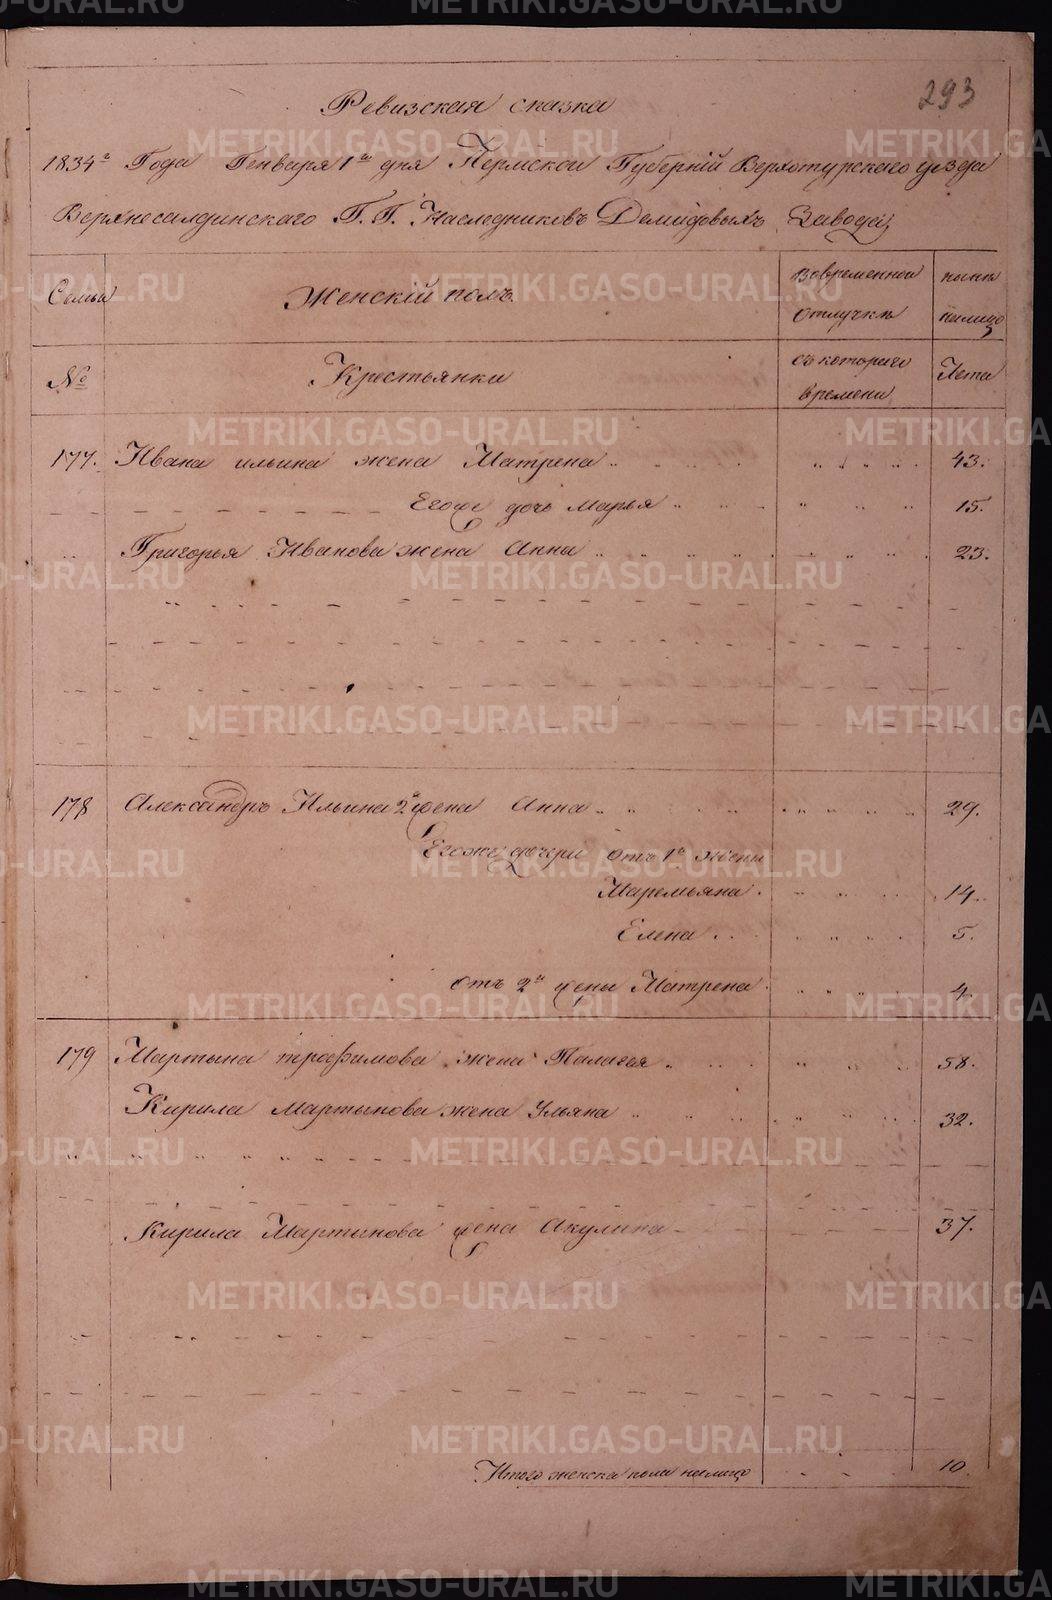 293
Ревизская сказка
1834го Года Генваря 1го дня Пермской Губерній Верхотурского уезда
Верхнесалдинскаго Г.Г. Наследниковъ Демидовыхъ Завода
Семьи
Женскій полъ
Вовременной
отлучке
ныне
налицо
№
Крестьянки
съ котораго
времени
Лета
177. Ивана ильина жена Матрена 43.
Егоже дочь Марья 15.
Григорья Иванова жена Анна 23.
178 Александръ Ильина 2я жена Анна 29.
Егоже дочери отъ 1й жены
Маремьяна 14.
Елена 5.
отъ 2й жены Матрена 4.
179 Мартына трофимова жена Палагея 58.
Кирила Мартынова жена Ульяна 32.
Кирила Мартынова жена Акулина 37.
Итого женска пола налицо 10
METRIKI.GASO-URAL.RU